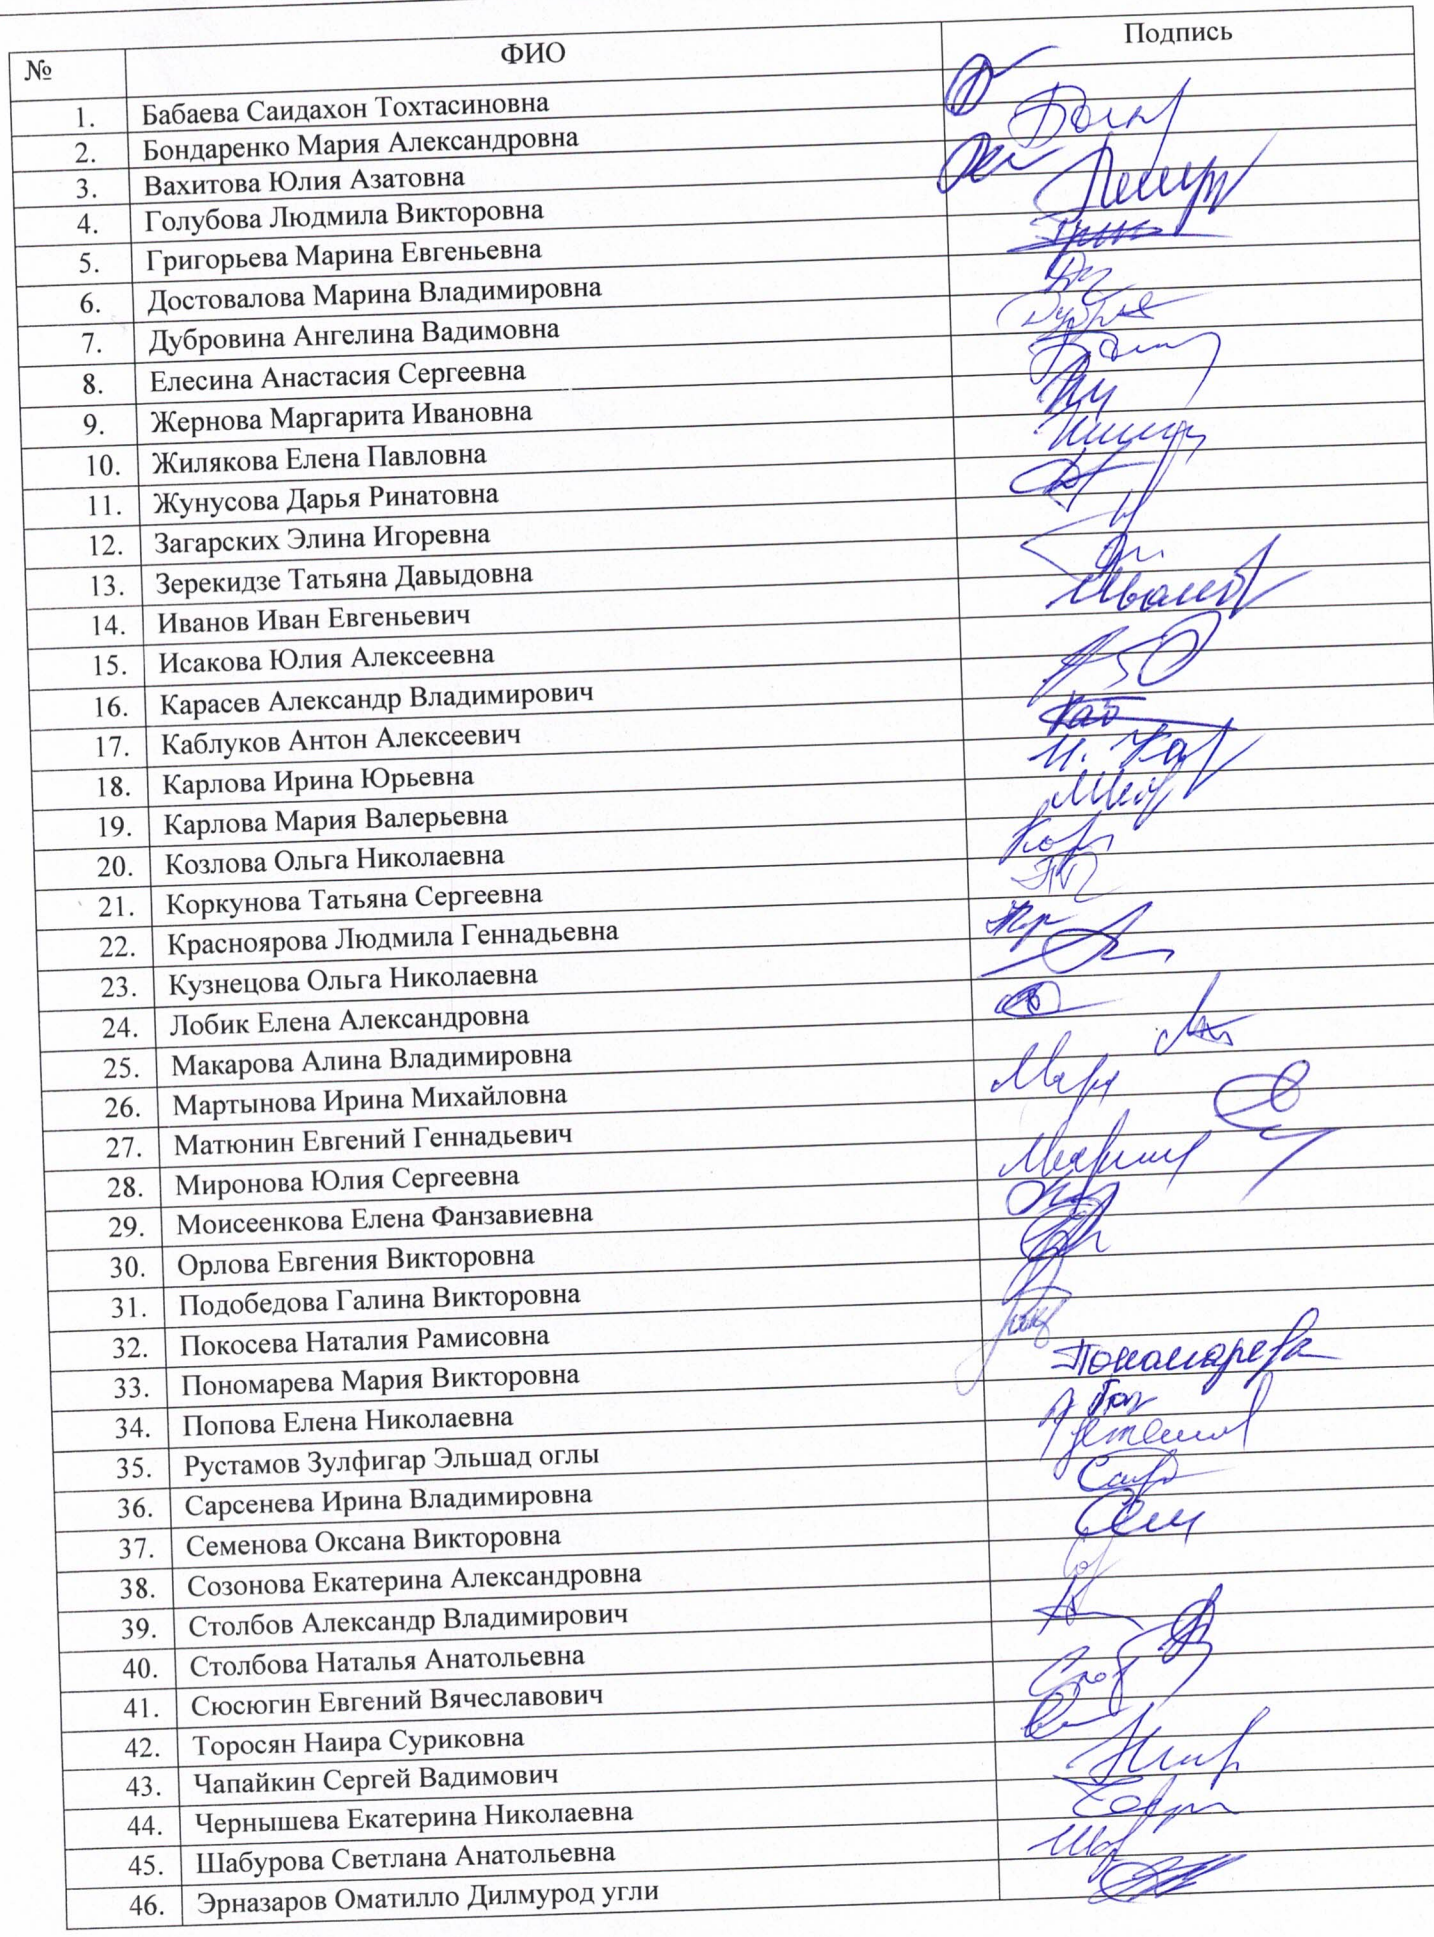 № ФИО Подпись
1. Бабаева Саидахон Тохтасиновна
2. Бондаренко Мария Александровна
3. Вахитова Юлия Азатовна
4. Голубова Людмила Викторовна
5. Григорьева Марина Евгеньевна
6. Достовалова Марина Владимировна
7. Дубровина Ангелина Вадимовна
8. Елесина Анастасия Сергеевна
9. Жернова Маргарита Ивановна
10. Жилякова Елена Павловна
11. Жунусова Дарья Ринатовна
12. Загарских Элина Игоревна
13. Зерекидзе Татьяна Давыдовна
14. Иванов Иван Евгеньевич
15. Исакова Юлия Алексеевна
16. Карасев Александр Владимирович
17. Каблуков Антон Алексеевич
18. Карлова Ирина Юрьевна
19. Карлова Мария Валерьевна
20. Козлова Ольга Николаевна
21. Коркунова Татьяна Сергеевна
22. Красноярова Людмила Геннадьевна
23. Кузнецова Ольга Николаевна
24. Лобик Елена Александровна
25. Макарова Алина Владимировна
26. Мартынова Ирина Михайловна
27. Матюнин Евгений Геннадьевич
28. Миронова Юлия Сергеевна
29. Моисеенкова Елена Фанзавиевна
30. Орлова Евгения Викторовна
31. Подобедова Галина Викторовна
32. Покосева Наталия Рамисовна
33. Пономарева Мария Викторовна Пономарева
34. Попова Елена Николаевна
35. Рустамов Зулфигар Эльшад оглы
36. Сарсенева Ирина Владимировна
37. Семенова Оксана Викторовна
38. Созонова Екатерина Александровна
39. Столбов Александр Владимирович
40. Столбова Наталья Анатольевна
41. Сюсюгин Евгений Вячеславович
42. Торосян Наира Суриковна
43. Чапайкин Сергей Вадимович
44. Чернышева Екатерина Николаевна
45. Шабурова Светлана Анатольевна
46. Эрназаров Оматилло Дилмурод угли